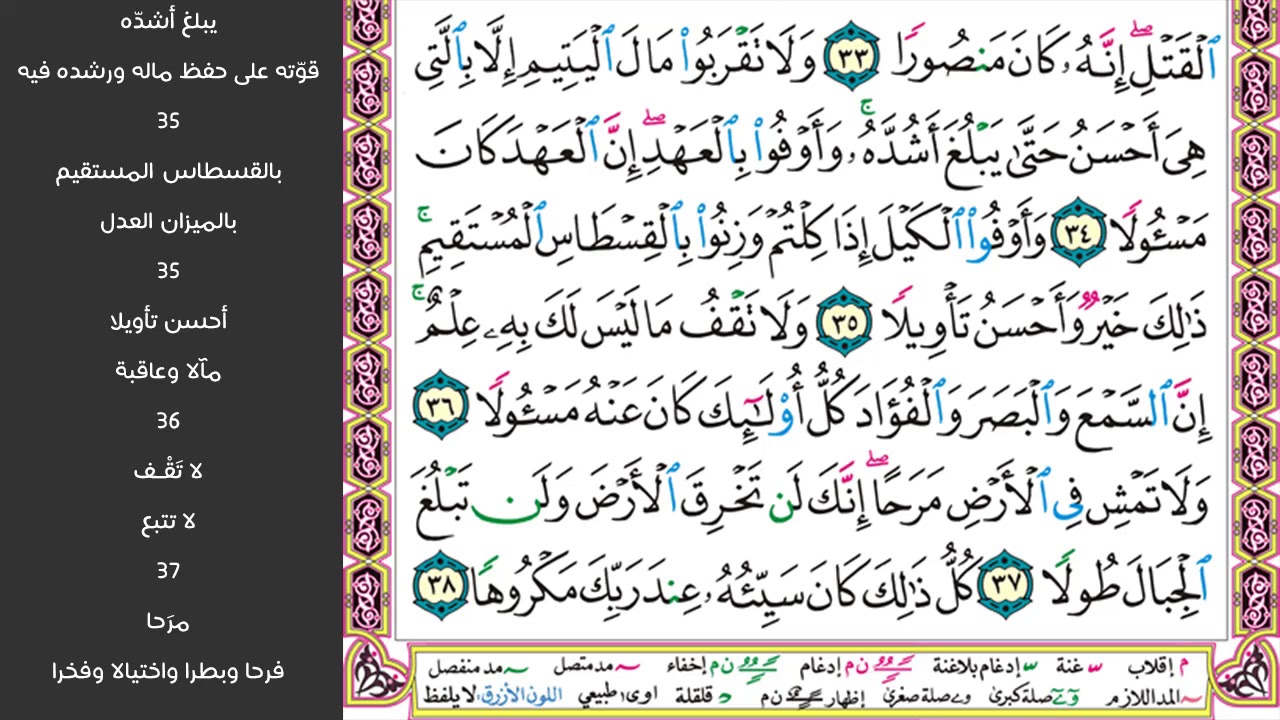 ٱلْقَتْلِ ۖ إِنَّهُۥ كَانَ مَنصُورًا ٣٣ وَلَا تَقْرَبُوا۟ مَالَ ٱلْيَتِيمِ إِلَّا بِٱلَّتِى
هِىَ أَحْسَنُ حَتَّىٰ يَبْلُغَ أَشُدَّهُۥ ۚ وَأَوْفُوا۟ بِٱلْعَهْدِ ۖ إِنَّ ٱلْعَهْدَ كَانَ
مَسْـُٔولًا ٣٤ وَأَوْفُوا۟ ٱلْكَيْلَ إِذَا كِلْتُمْ وَزِنُوا۟ بِٱلْقِسْطَاسِ ٱلْمُسْتَقِيمِ ۚ
ذَٰلِكَ خَيْرٌ وَأَحْسَنُ تَأْوِيلًا ٣٥ وَلَا تَقْفُ مَا لَيْسَ لَكَ بِهِۦ عِلْمٌ ۚ
إِنَّ ٱلسَّمْعَ وَٱلْبَصَرَ وَٱلْفُؤَادَ كُلُّ أُو۟لَـٰٓئِكَ كَانَ عَنْهُ مَسْـُٔولًا ٣٦
وَلَا تَمْشِ فِى ٱلْأَرْضِ مَرَحًا ۖ إِنَّكَ لَن تَخْرِقَ ٱلْأَرْضَ وَلَن تَبْلُغَ
ٱلْجِبَالَ طُولًا ٣٧ كُلُّ ذَٰلِكَ كَانَ سَيِّئُهُۥ عِندَ رَبِّكَ مَكْرُوهًا ٣٨
م إقلاب ـس غنة ـس إدغام بلاغنة ن م إدغام ن م إخفاء ـس مد متصل ـس مد منفصل
ـس المد اللازم صلة كبرى صلة صغرى إظهار ن م قلقلة اوى طبيعي اللون الأزرق: لا يلفظ
يبلغ أشدّه
قوّته على حفظ ماله ورشده فيه
35
بالقسطاس المستقيم
بالميزان العدل
35
أحسن تأويلا
مآلا وعاقبة
36
لا تَقْـف
لا تتبع
37
مرَحا
فرحا وبطرا واختيالا وفخرا